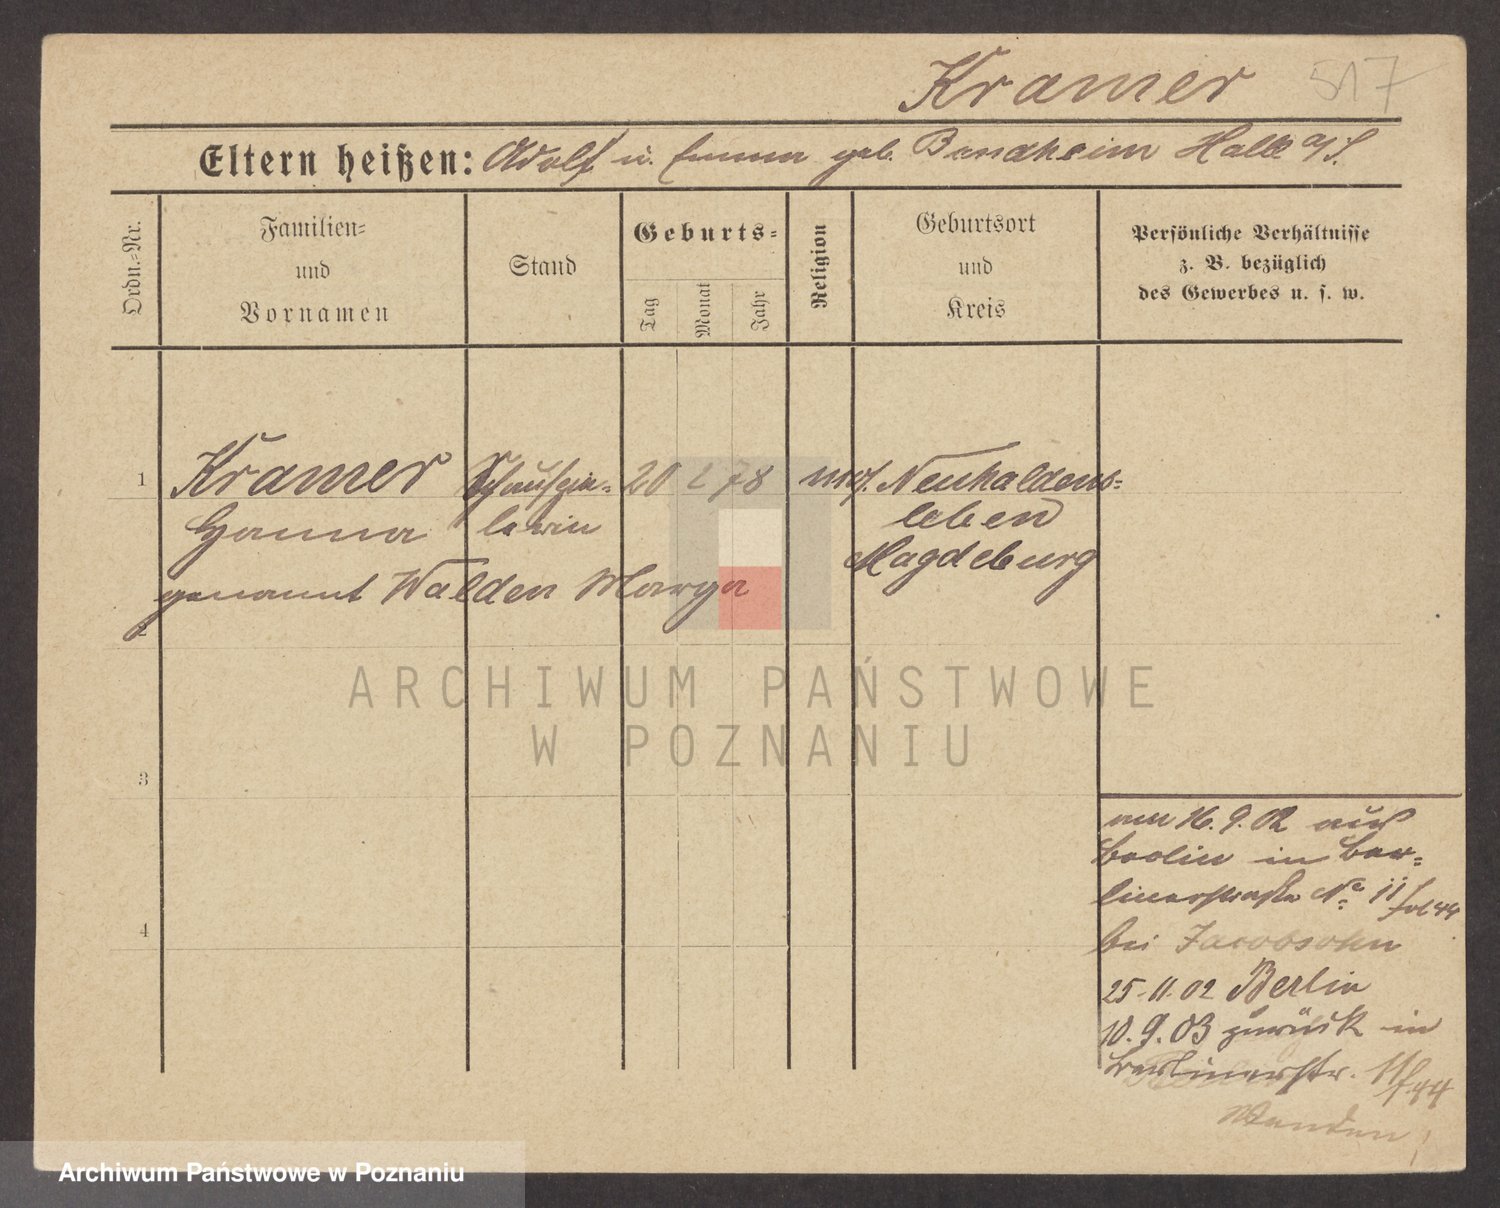 Kramer 517
Eltern heißen: Adolf u. Emma geb. Bendheim Halle a/S.
Ordn.-Nr.
Familien-
und
Vornamen
Stand
Geburts-
Tag
Monat
Jahr
Religion
Geburtsort
und
Kreis
Persönliche Verhältnisse
z. B. bezüglich
des Gewerbes u. s. w.
1 Kramer Schauspie- 20 2 78 mos. Neuhaldens-
Hanna lerin leben
Magdeburg
genannt Walden Marga
2
ARCHIWUM PAŃSTWOWE
W POZNANIU
3
4
am 16.9.02 aus
Berlin in Ber-
linerstraße No 11/fol 44
bei Jacobsohn
25.11.02 Berlin
10.9.03 zurück in
Berlinerstr. 11/f 44
Wenden!
Archiwum Państwowe w Poznaniu